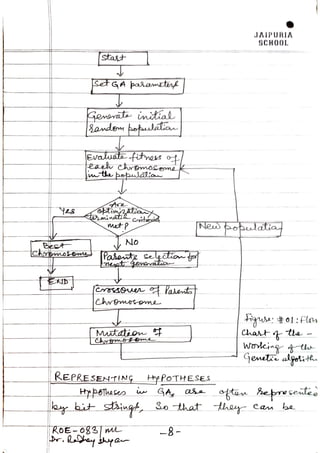 JAIPURIA
SCHOOL
Start
Set GA parameters
Generate initial
Random population
Evaluate fitness of
each chromosome
in the population
Are
optimization
termination criteria
met?
Yes
No
New populatio
Best
Chromosome
Parents selection for
next generation
END
Crossover of Parents
Chromosome
Mutation of
Chromosome
Figure: #01: Flow
Chart of the -
Working of the
Genetic algorith
REPRESENTING HYPOTHESES
Hypotheses in GAs are often represented
by bit strings, so that they can be
ROE-083/ML
Dr. Radhey Shyam
-8-